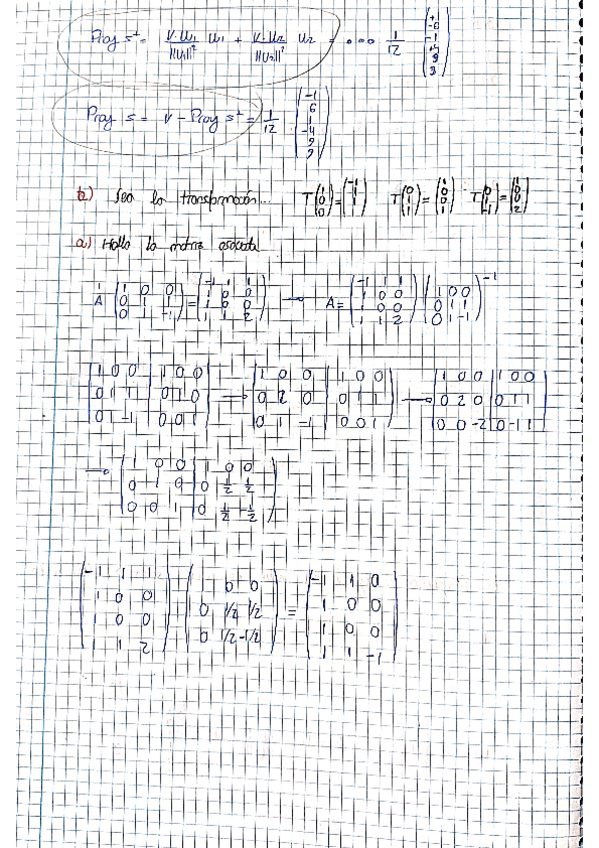 Proy s⊥ = v·u₁/||u₁||² u₁ + v·u₂/||u₂||² u₂ = ... 1/12
Proy s = v - Proy s⊥ = 1/12 (-1 6 1 -4 9 9)
b) Sea la transformación... T(1 0 0) = (-1 1 1 1) T(0 1 1) = (1 0 0 1) T(0 1 -1) = (1 0 0 2)
a) Halla la matriz asociada
A (1 0 0 / 0 1 1 / 0 1 -1) = (-1 1 1 / 1 0 0 / 1 0 0 / 1 1 2) → A = (-1 1 1 / 1 0 0 / 1 0 0 / 1 1 2) (1 0 0 / 0 1 1 / 0 1 -1)⁻¹
(1 0 0 | 1 0 0 / 0 1 1 | 0 1 0 / 0 1 -1 | 0 0 1) → (1 0 0 | 1 0 0 / 0 2 0 | 0 1 1 / 0 1 -1 | 0 0 1) → (1 0 0 | 1 0 0 / 0 2 0 | 0 1 1 / 0 0 -2 | 0 -1 1)
→ (1 0 0 | 1 0 0 / 0 1 0 | 0 1/2 1/2 / 0 0 1 | 0 1/2 -1/2)
(-1 1 1 / 1 0 0 / 1 0 0 / 1 1 2) (1 0 0 / 0 1/2 1/2 / 0 1/2 -1/2) = (-1 1 0 / 1 0 0 / 1 0 0 / 1 1 -1)